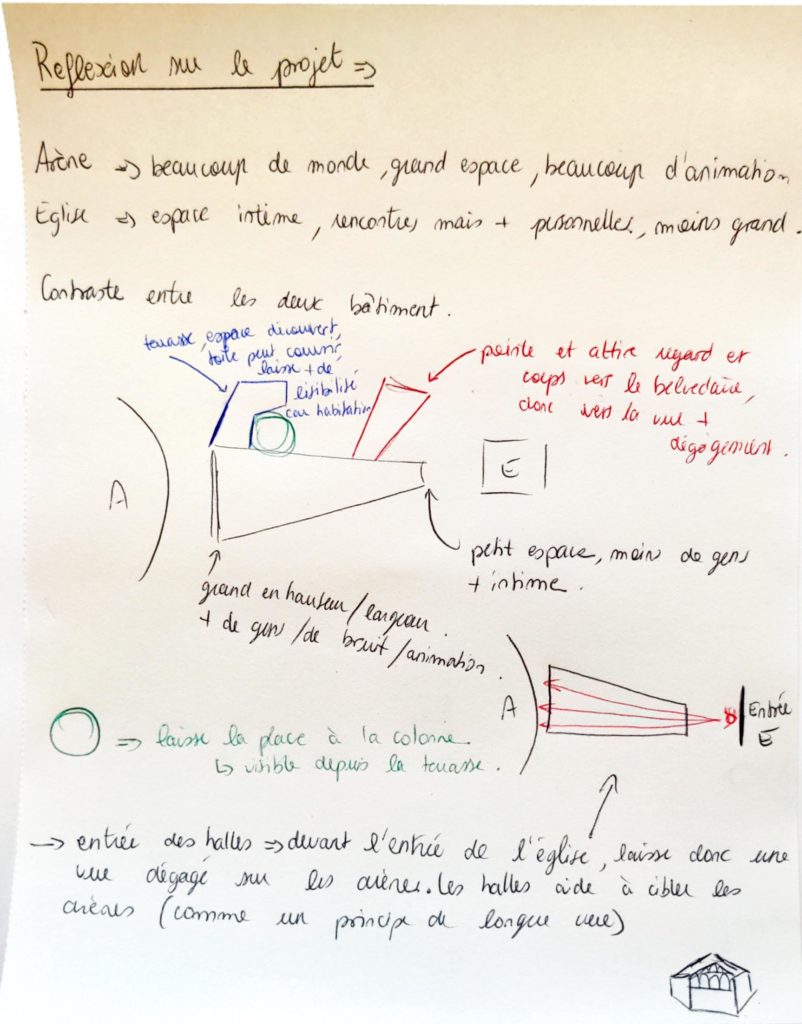 Reflexion sur le projet =>
Arène => beaucoup de monde, grand espace, beaucoup d'animation
Eglise => espace intime, rencontres mais + personnelles, moins grand.
Contraste entre les deux bâtiment.
terrasse, espace découvert,
toile peut couvrir,
laisse + de
lisibilité
car habitation
pointe et attire regard et
corps vers le belvedaire,
donc vers la vue +
dégagement.
A
E
petit espace, moin de gens
+ intime.
grand en hauteur/largeur.
+ de gens/de bruit/animation.
A
Entrée
E
=> laisse la place à la colonne.
↳ visible depuis la terrasse.
→ entrée des halles => devant l'entrée de l'église, laisse donc une
vue dégagé sur les arènes. Les halles aide à cibler les
arènes (comme un princip de longue vue)